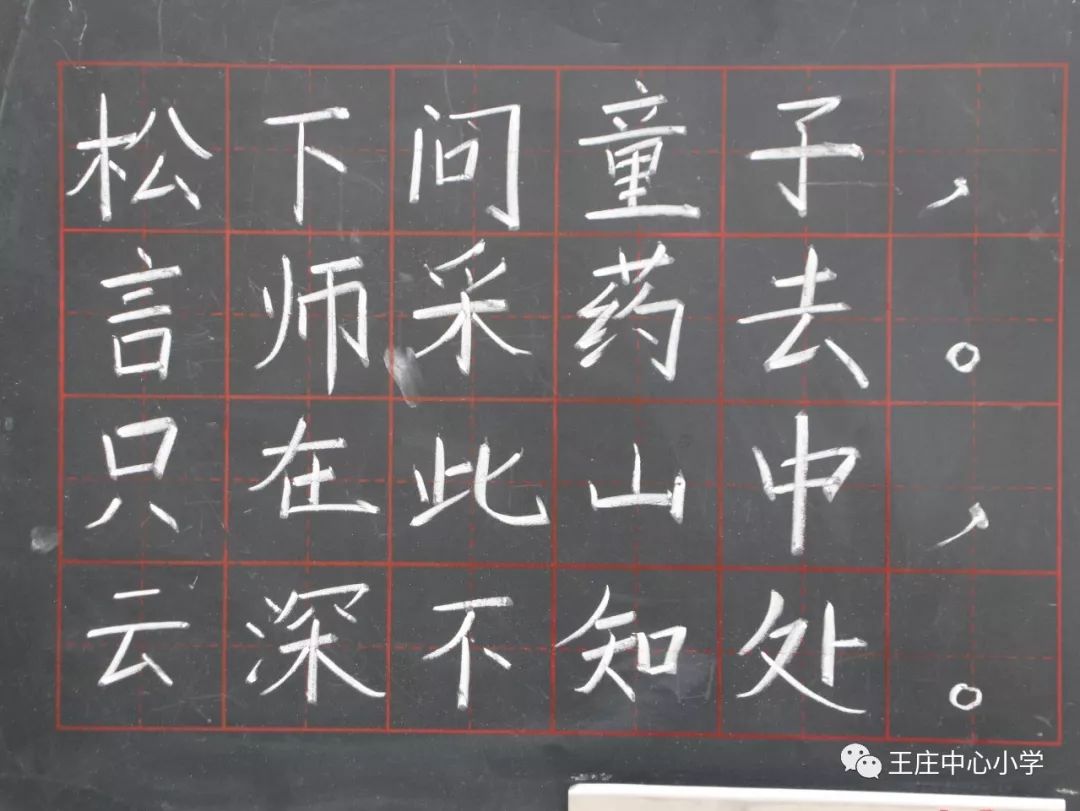 松下问童子，
言师采药去。
只在此山中，
云深不知处。
王庄中心小学